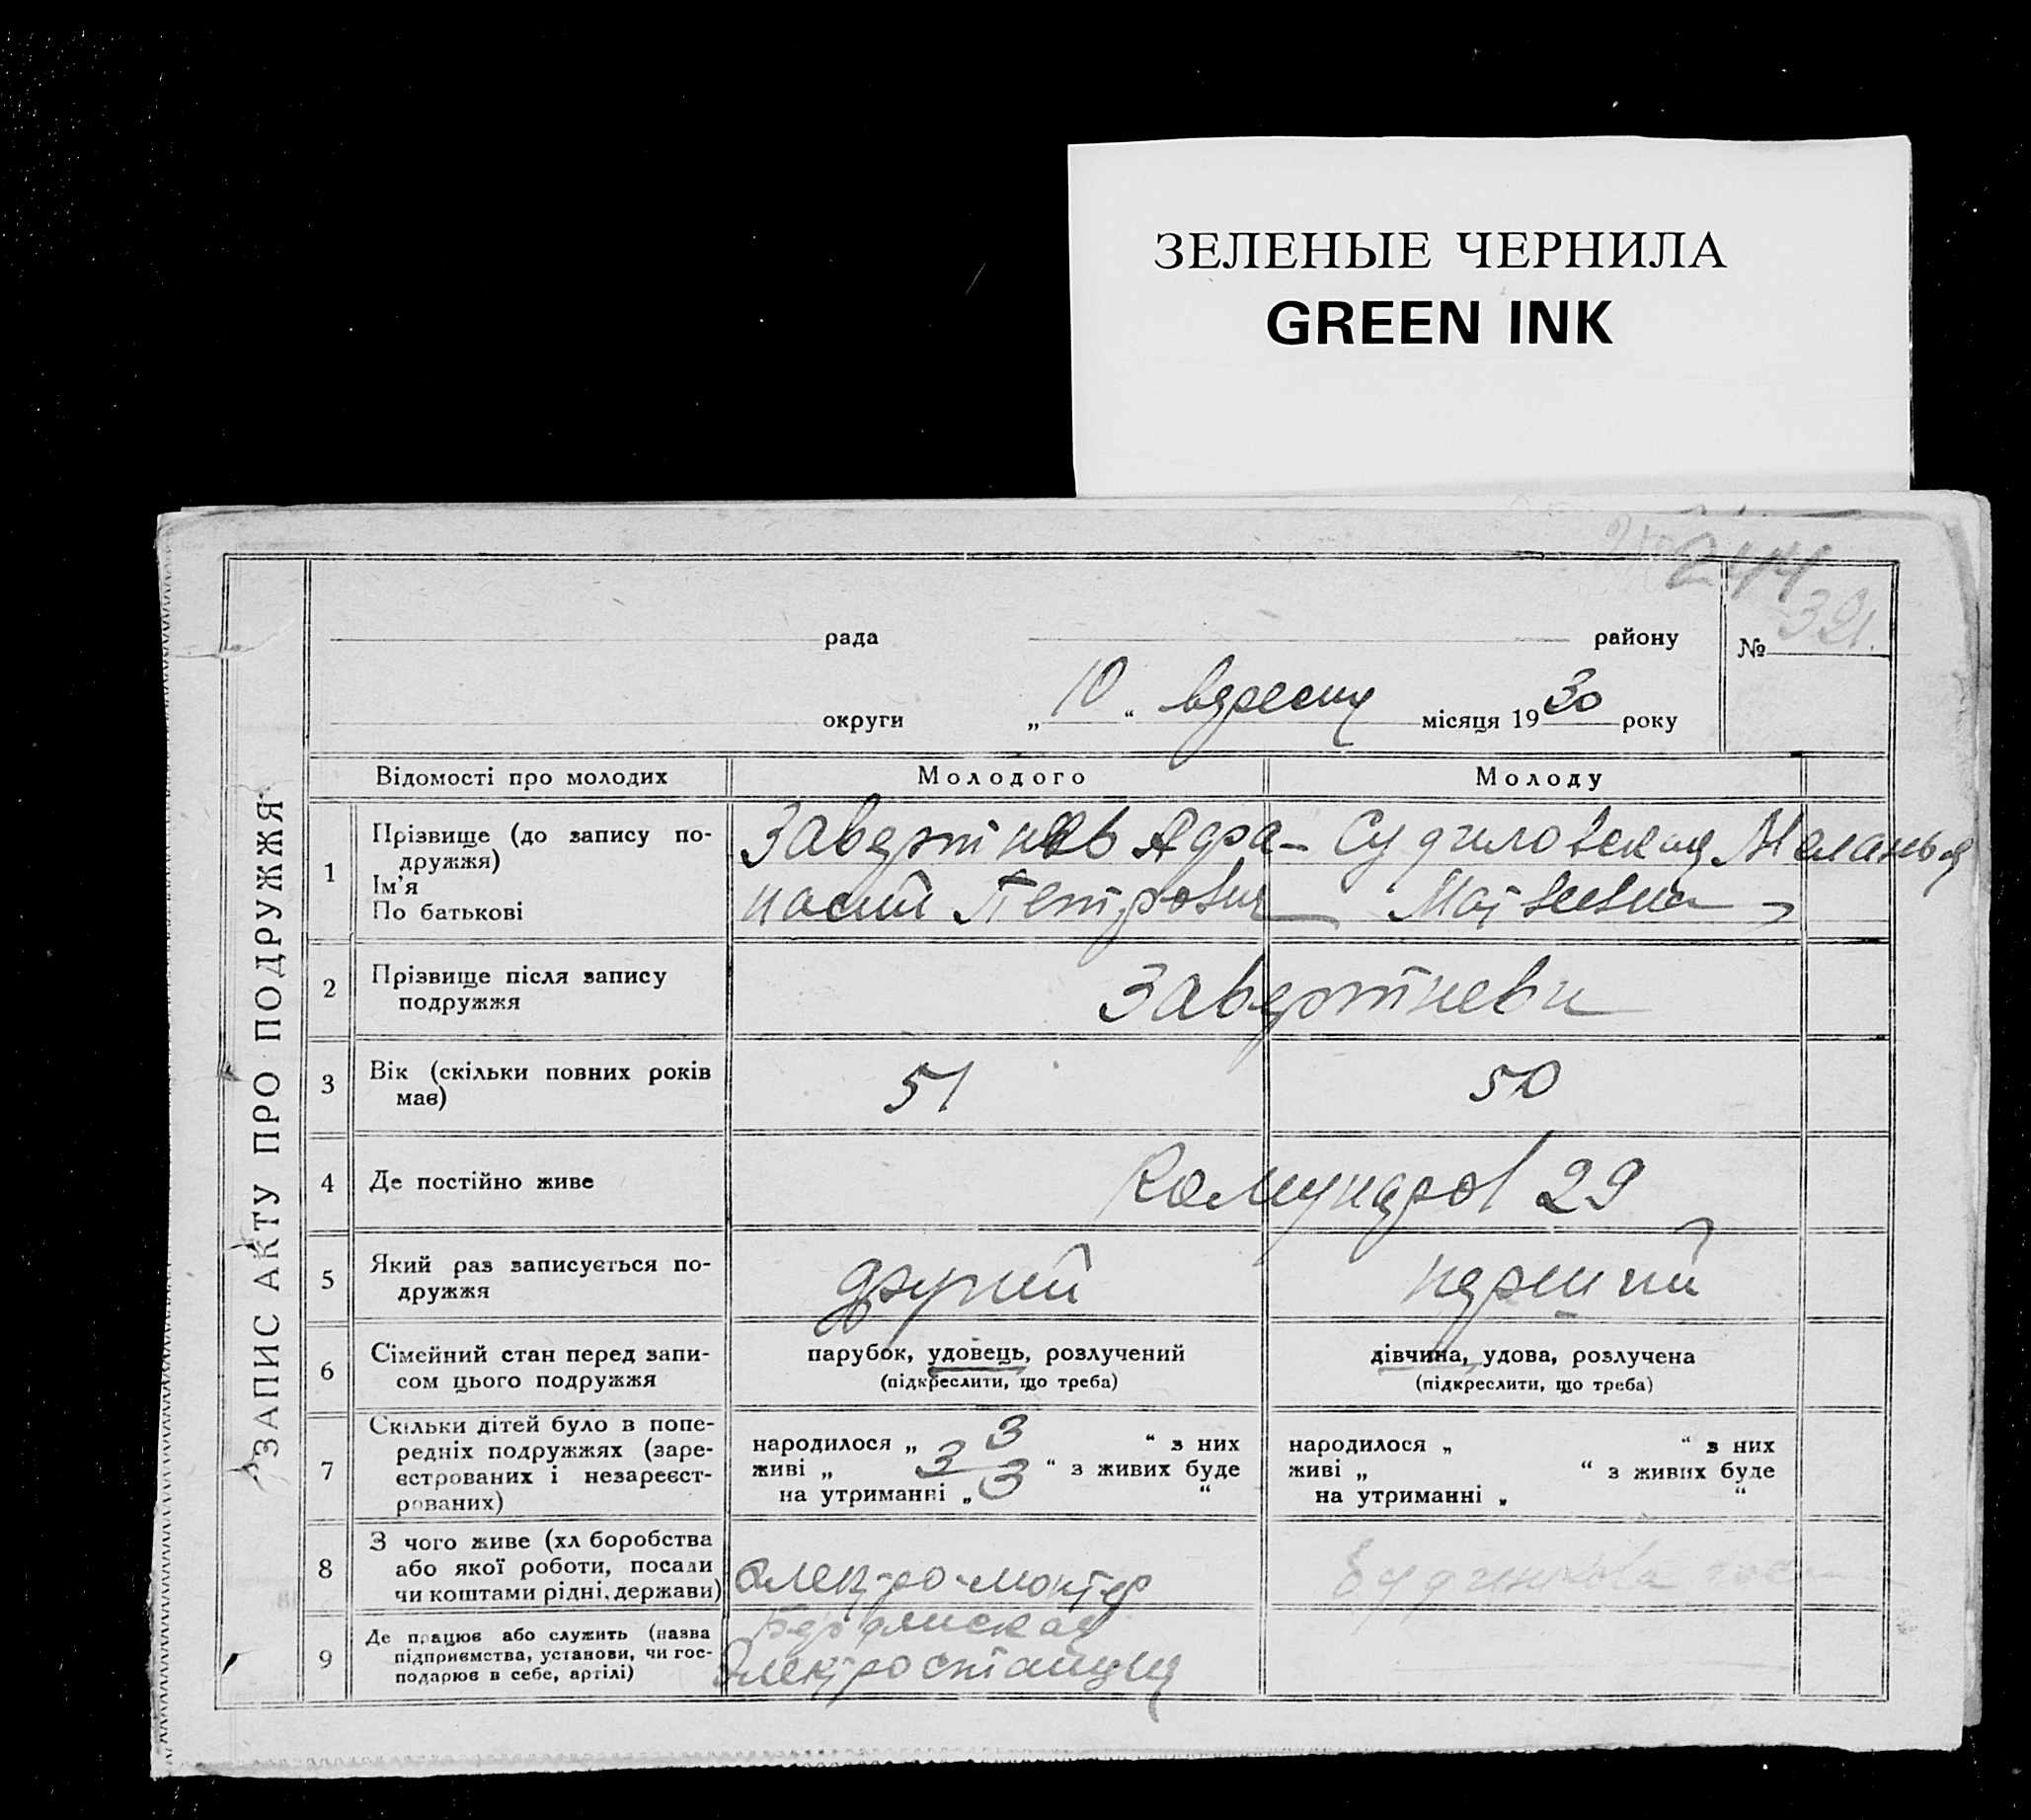 ЗЕЛЕНЫЕ ЧЕРНИЛА
GREEN INK
32
рада району №
округи „ 10 “ вересня місяця 19 30 року
ЗАПИС АКТУ ПРО ПОДРУЖЖЯ
Відомості про молодих Молодого Молоду
1 Прізвище (до запису по-
дружжя)
Ім'я
По батькові
Завертнев Афа-
насий Петрович
Судиловская Меланья
Матвеевна
2 Прізвище після запису
подружжя
Завертневи
3 Вік (скільки повних років
має)
51 50
4 Де постійно живе
Комунаров 29
5 Який раз записується по-
дружжя
другий перший
6 Сімейний стан перед запи-
сом цього подружжя
парубок, удовець, розлучений
(підкреслити, що треба)
дівчина, удова, розлучена
(підкреслити, що треба)
7 Скільки дітей було в попе-
редніх подружжях (заре-
єстрованих і незареєст-
рованих)
народилося „ 3 “ з них
живі „ 3 “ з живих буде
на утриманні „ 3 “
народилося „ “ з них
живі „ “ з живих буде
на утриманні „ “
8 З чого живе (хл боробства
або якої роботи, посади
чи коштами рідні, держави)
Электро-монтер
9 Де працює або служить (назва
підприємства, установи, чи гос-
подарює в себе, артілі)
Бердянская
Электростанция